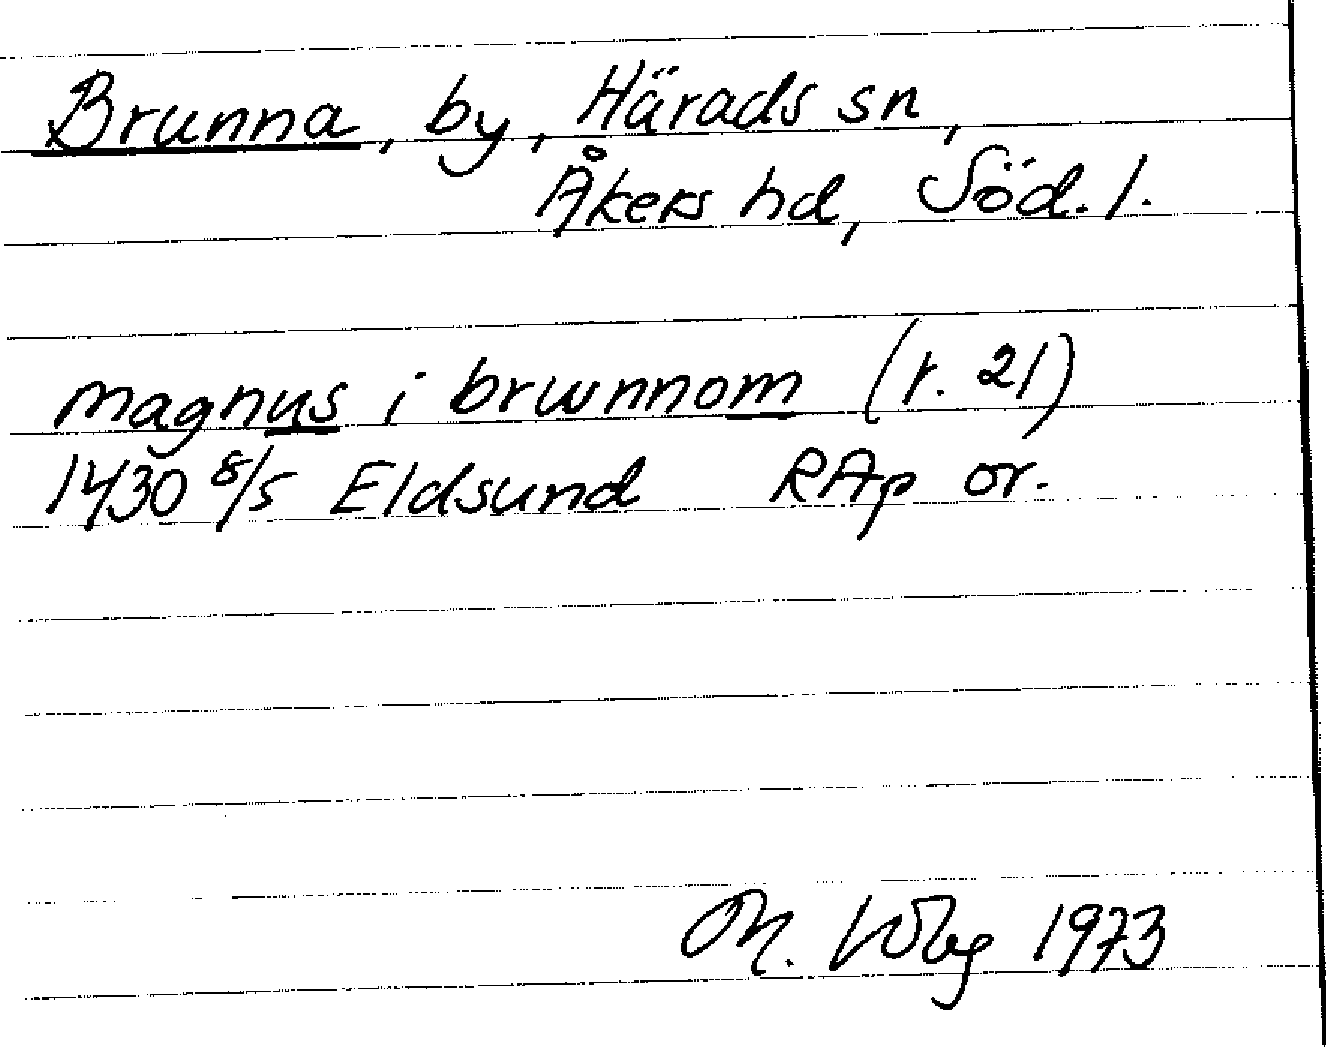 Brunna, by, Härads sn,
Åkers hd, Söd. l.
magnus i brwnnom (r. 21)
1430 8/5 Eldsund RAp or.
M. Wbg 1973